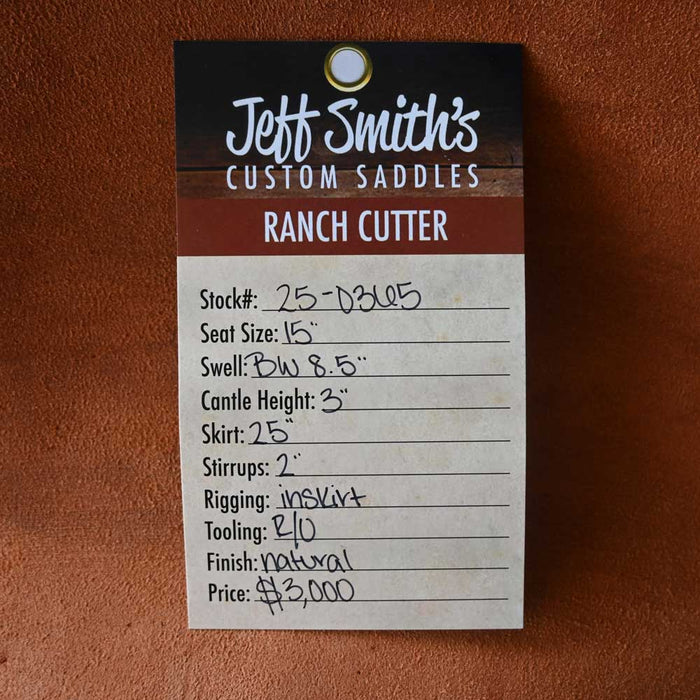 Jeff Smith's
CUSTOM SADDLES
RANCH CUTTER
Stock#: 25-0365
Seat Size: 15"
Swell: BW 8.5"
Cantle Height: 3"
Skirt: 25"
Stirrups: 2"
Rigging: inskirt
Tooling: R/O
Finish: natural
Price: $3,000